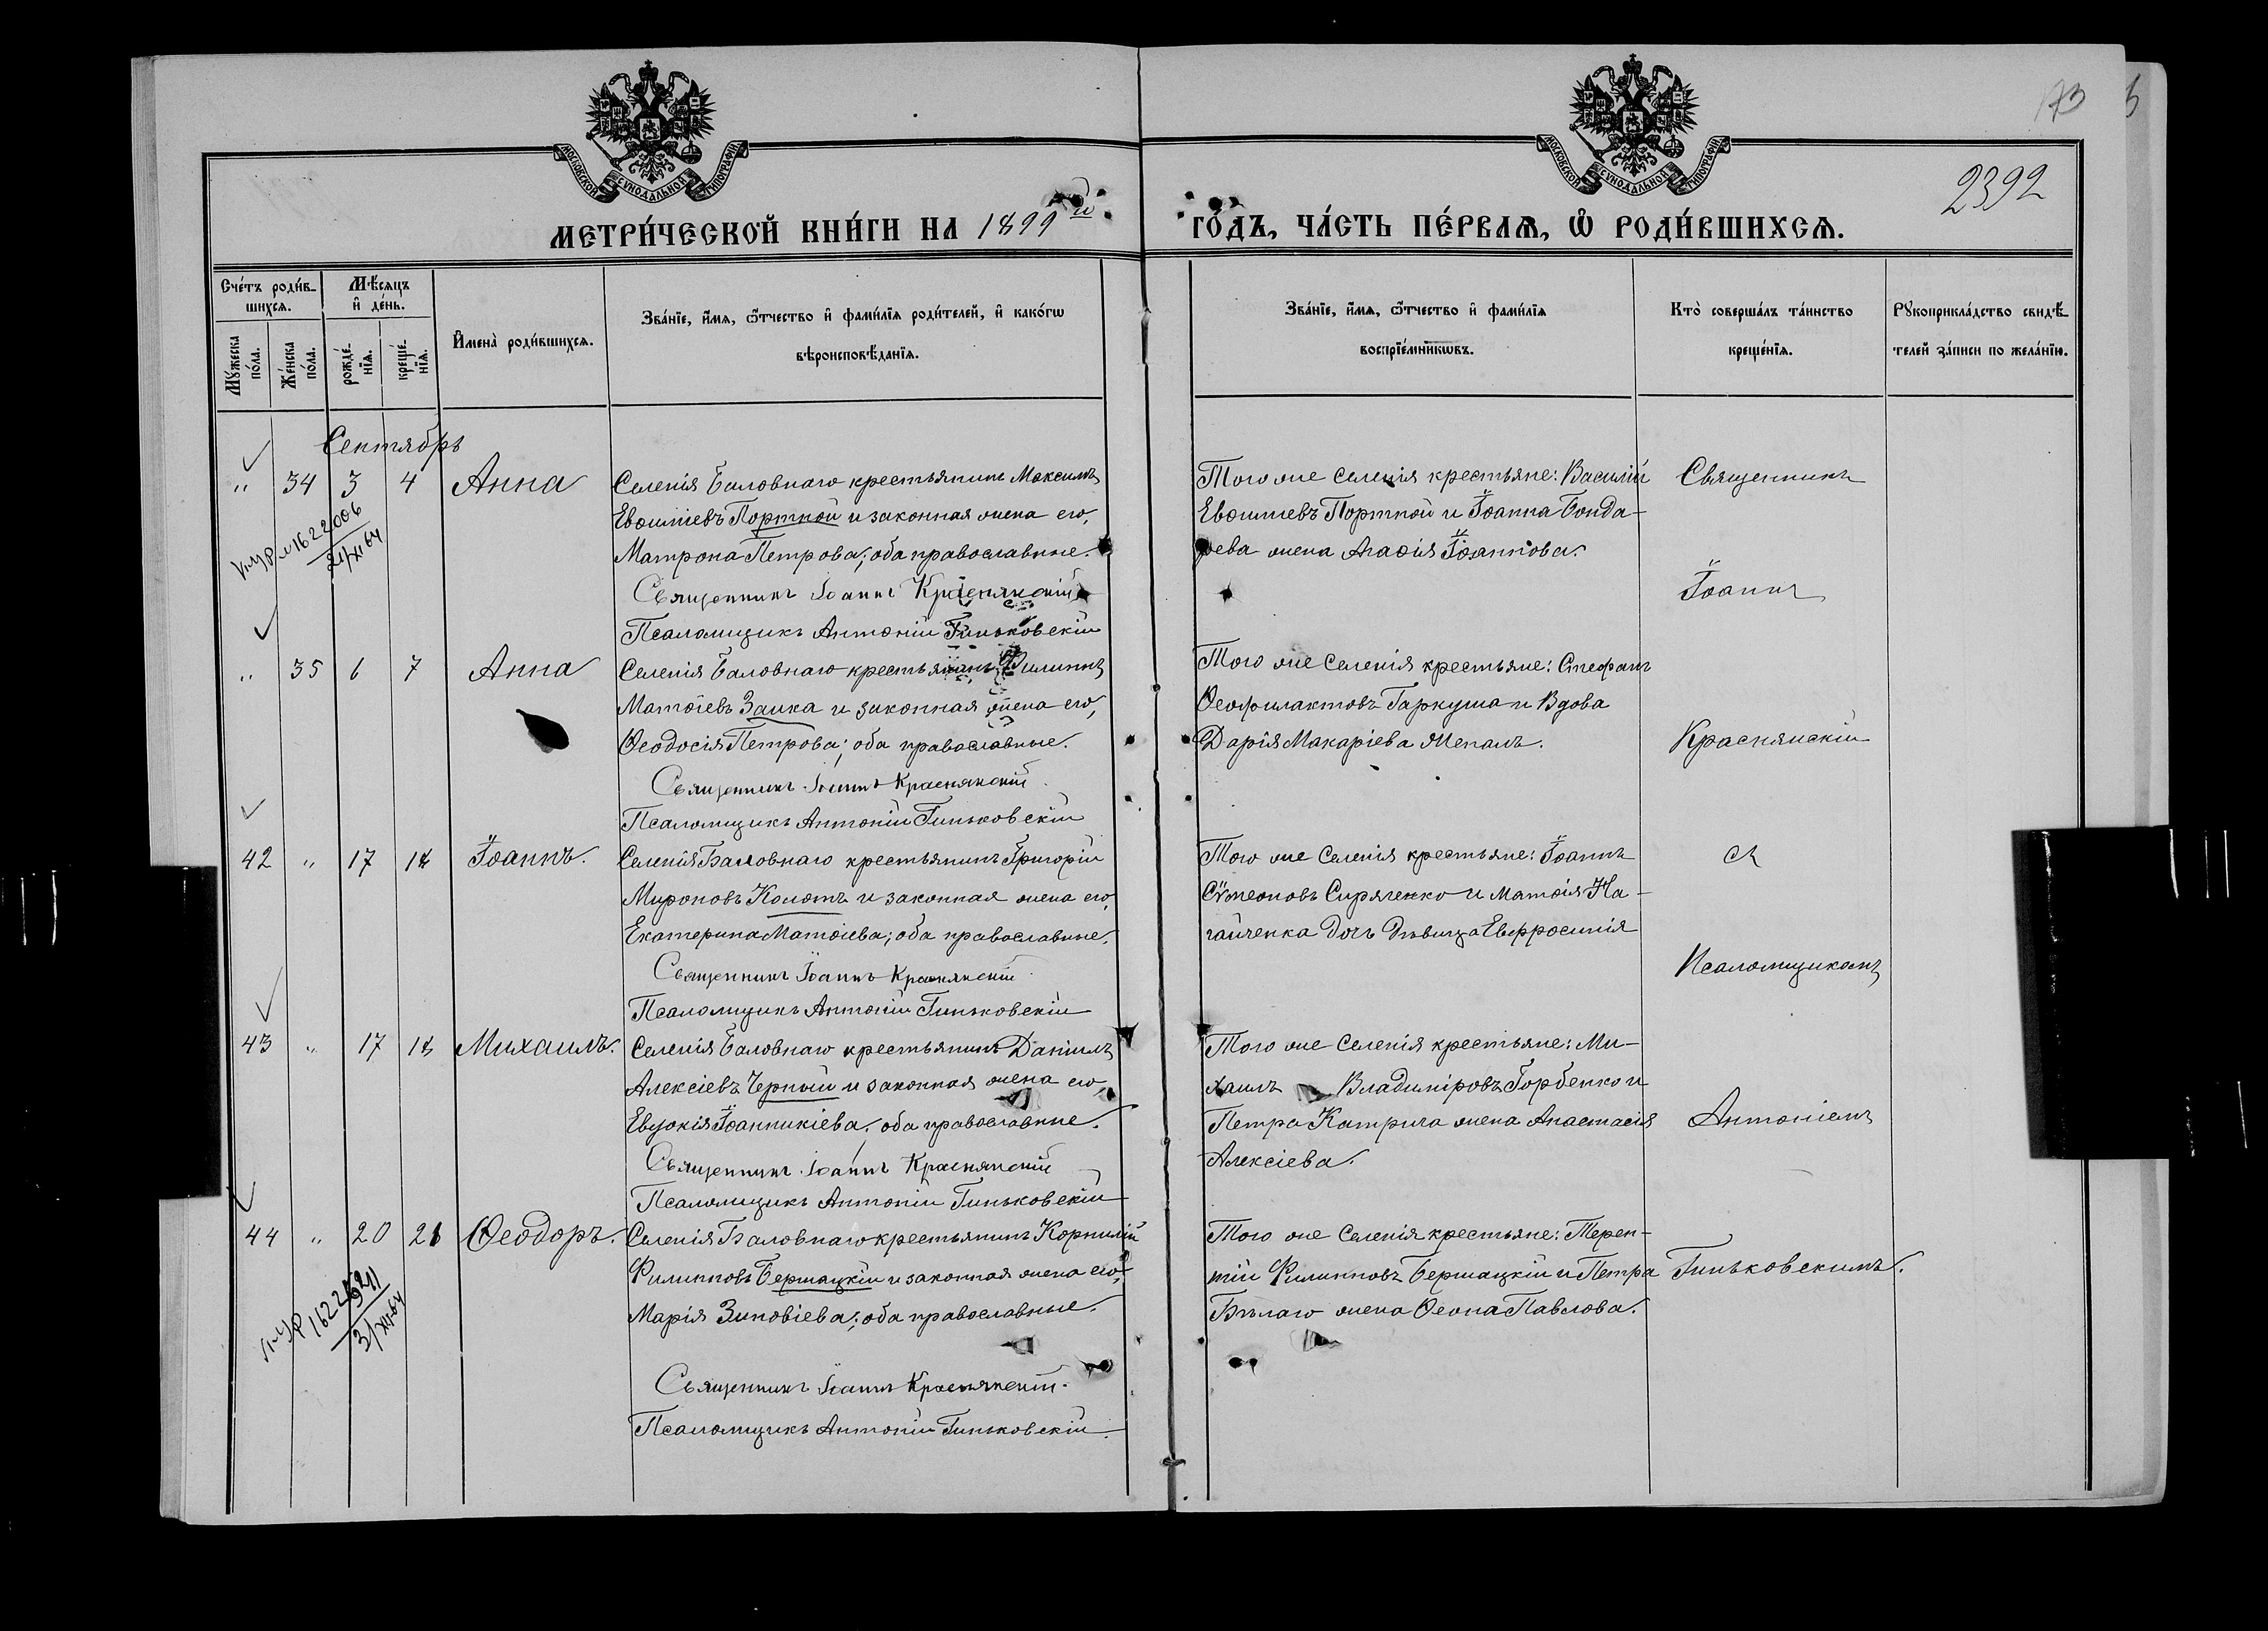 МОСКОВСКОЙ СУНОДАЛЬНОЙ ТИПОГРАФІИ
МОСКОВСКОЙ СУНОДАЛЬНОЙ ТИПОГРАФІИ
2392
МЕТРИ́ЧЕСКОЙ КНИ́ГИ НА 1899й
ГО́ДЪ, ЧА́СТЬ ПЕ́РВАѦ, Ѡ РОДИ́ВШИХСѦ.
Сче́тъ роди́в-
шихсѧ.
Мѣ́сѧцъ
и҆ де́нь.
Му́жеска по́ла.
Же́нска по́ла.
рожде́-
нїѧ.
креще́-
нїѧ.
И҆мена̀ роди́вшихсѧ.
Зва́нїе, и҆́мѧ, ѻ҆́тчество и҆ фами́лїѧ роди́телей, и҆ како́гѡ
вѣроисповѣ́данїѧ.
Зва́нїе, и҆́мѧ, ѻ҆́тчество и҆ фами́лїѧ
воспрїе́мникѡвъ.
Кто̀ соверша́лъ та́инство
креще́нїѧ.
Рꙋкоприкла́дство свидѣ́-
телей за́писи по жела́нїю.
Сентябрь
" 34 3 4 Анна
Селенія Баловнаго крестьянинъ Максимъ
Евѳиміевъ Портной и законная жена его,
Матрона Петрова; оба православные.
Священникъ Іоаннъ Краснянскій
Псаломщикъ Антоній Гиньковскій
Того же селенія крестьяне: Василій
Евѳиміевъ Портной и Іоанна Бонда-
рева жена Агаѳія Іоаннова.
" 35 6 7 Анна
Селенія Баловнаго крестьянинъ Филиппъ
Матѳіевъ Заика и законная жена его,
Ѳеодосія Петрова; оба православные.
Священникъ Іоаннъ Краснянскій
Псаломщикъ Антоній Гиньковскій
Того же селенія крестьяне: Стефанъ
Ѳеофилактовъ Гаркуша и вдова
Дарія Макаріева
42 " 17 18 Іоаннъ.
Селенія Баловнаго крестьянинъ Григорій
Мироновъ и законная жена его,
Екатерина Матѳіева; оба православные.
Священникъ Іоаннъ Краснянскій
Псаломщикъ Антоній Гиньковскій
Того же селенія крестьяне: Іоаннъ
Сѵмеоновъ Сиряченко и Матѳія На-
гайченка дочь дѣвица Евфросинія
43 " 17 18 Михаилъ.
Селенія Баловнаго крестьянинъ Даніилъ
Алексіевъ Черный и законная жена его,
Евдокія Іоанникіева, оба православные.
Священникъ Іоаннъ Краснянскій
Псаломщикъ Антоній Гиньковскій
Того же селенія крестьяне: Ми-
хаилъ Владиміровъ Горбенко и
Петра Катрича жена Анастасія
Алексіева.
44 " 20 21 Ѳеодоръ.
Селенія Баловнаго крестьянинъ Корнилій
Филипповъ Бершацкій и законная жена его,
Марія Зиновіева; оба православные.
Священникъ Іоаннъ Краснянскій.
Псаломщикъ Антоній Гиньковскій.
Того же селенія крестьяне: Терен-
тій Филипповъ Бершацкій и Петра
Бѣлаго жена Ѳеопа Павлова.
Священникъ
Іоаннъ
Краснянскій
съ
Псаломщикомъ
Антоніемъ
Гиньковскимъ.